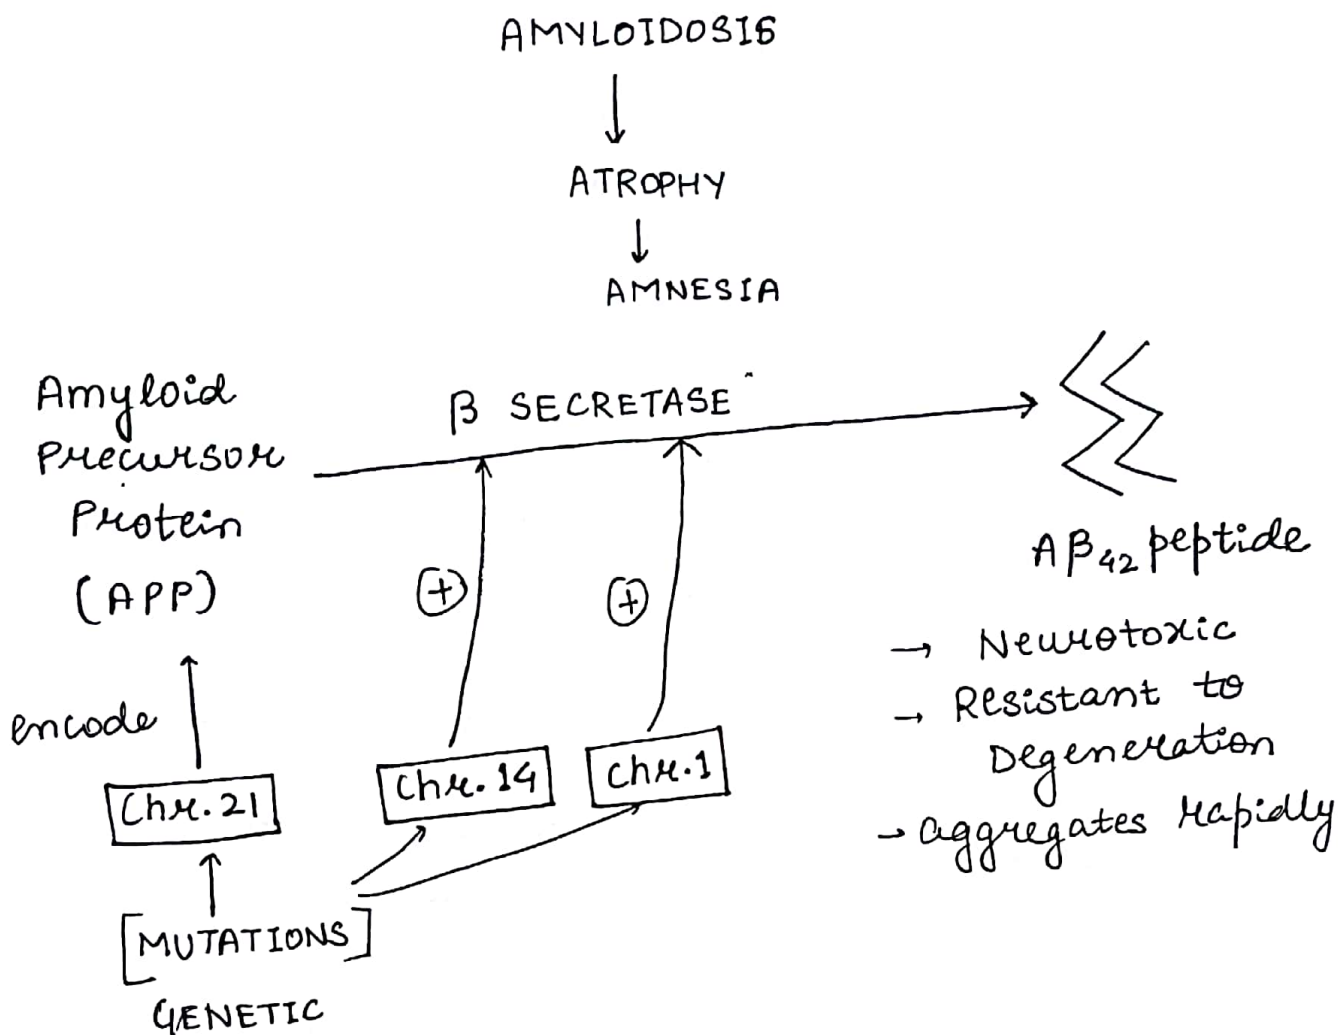 AMYLOIDOSIS
ATROPHY
AMNESIA
Amyloid
Precursor
Protein
(APP)
β SECRETASE
Aβ42 peptide
→ Neurotoxic
→ Resistant to
Degeneration
→ aggregates rapidly
+
+
encode
Chr. 21
Chr. 14
Chr. 1
[MUTATIONS]
GENETIC